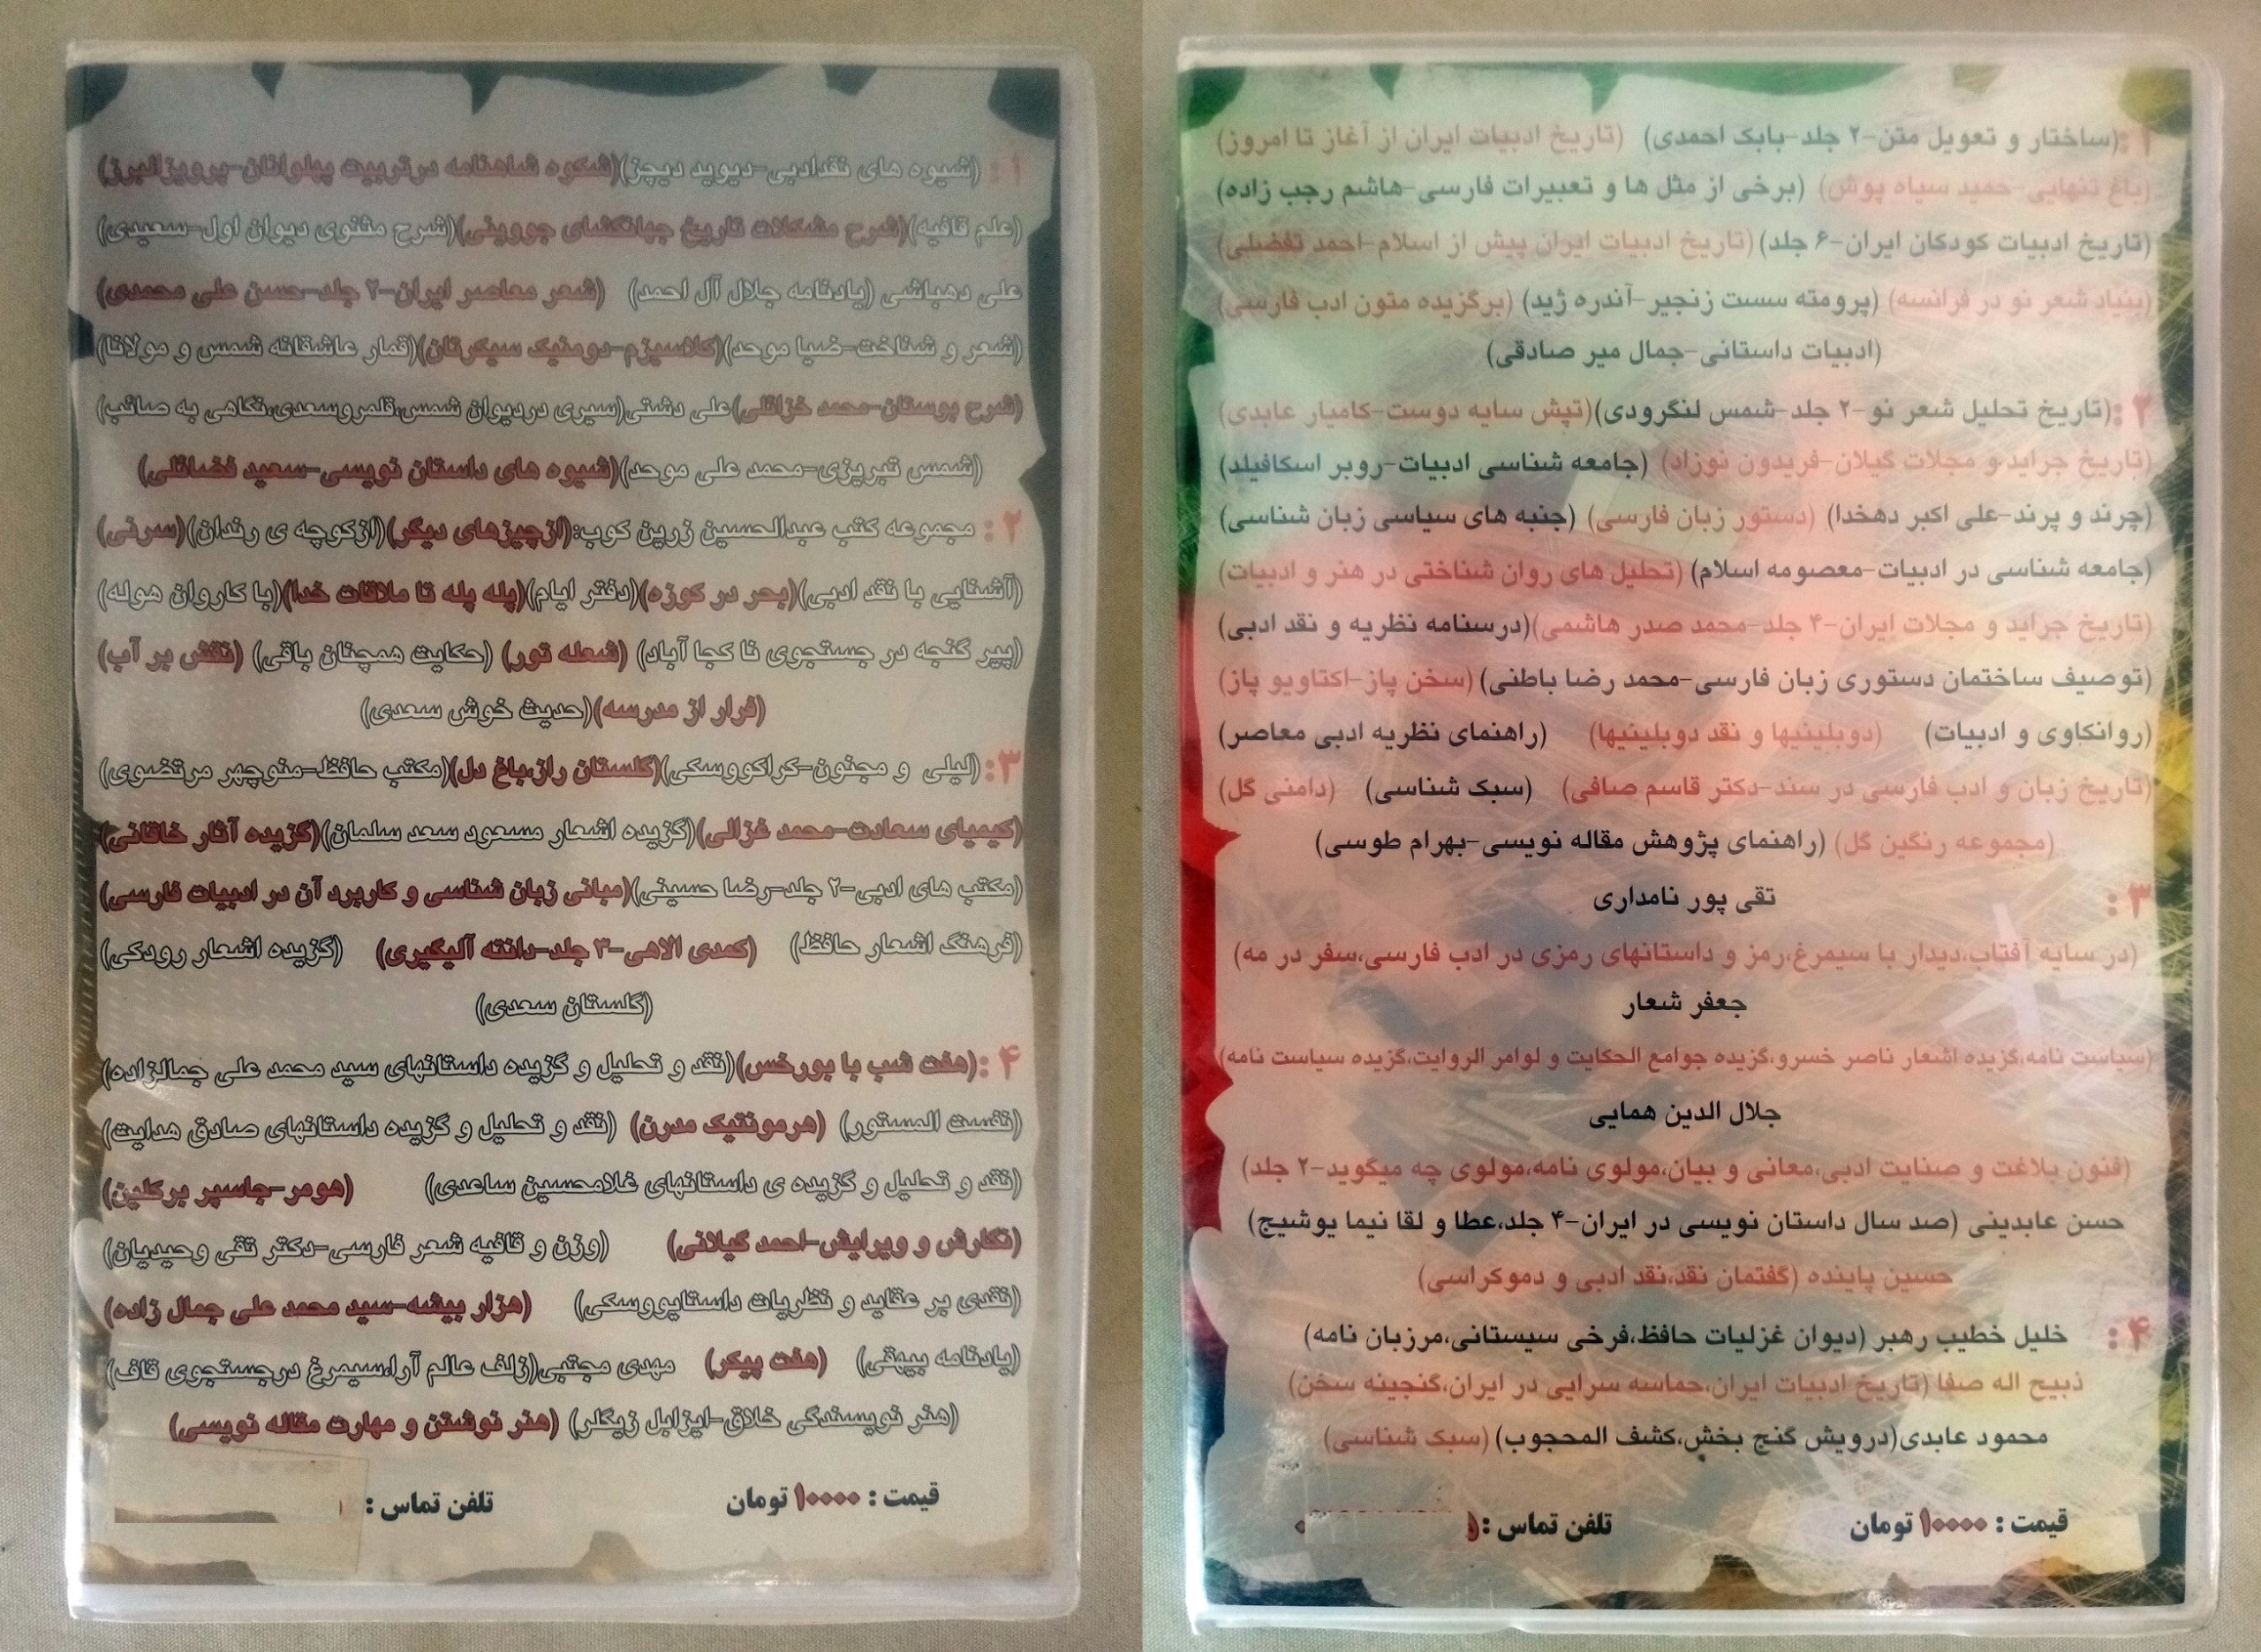 ۱: (شیوه های نقدادبی-دیوید دیچز)(شکوه شاهنامه درتربیت پهلوانان-پرویزالبرز)
(علم قافیه)(شرح مشکلات تاریخ جهانگشای جووینی)(شرح مثنوی دیوان اول-سعیدی)
علی دهباشی (یادنامه جلال آل احمد) (شعر معاصر ایران-۲ جلد-حسن علی محمدی)
(شعر و شناخت-ضیا موحد)(کلاسیزم-دومنیک سیکرتان)(قمار عاشقانه شمس و مولانا)
(شرح بوستان-محمد خزائلی)علی دشتی(سیری دردیوان شمس،قلمروسعدی،نگاهی به صائب)
(شمس تبریزی-محمد علی موحد)(شیوه های داستان نویسی-سعید فضائلی)
۲: مجموعه کتب عبدالحسین زرین کوب:(ازچیزهای دیگر)(ازکوچه ی رندان)(سرنی)
(آشنایی با نقد ادبی)(بحر در کوزه)(دفتر ایام)(پله پله تا ملاقات خدا)(با کاروان هوله)
(پیر گنجه در جستجوی نا کجا آباد) (شعله تور) (حکایت همچنان باقی) (نقش بر آب)
(فرار از مدرسه)(حدیث خوش سعدی)
۳: (لیلی و مجنون-کراکووسکی)(گلستان راز،باغ دل)(مکتب حافظ-منوچهر مرتضوی)
(کیمیای سعادت-محمد غزالی)(گزیده اشعار مسعود سعد سلمان)(گزیده آثار خاقانی)
(مکتب های ادبی-۲ جلد-رضا حسینی)(مبانی زبان شناسی و کاربرد آن در ادبیات فارسی)
(فرهنگ اشعار حافظ) (کمدی الاهی-۳ جلد-دانته آلیگیری) (گزیده اشعار رودکی)
(گلستان سعدی)
۴: (هفت شب با بورخس)(نقد و تحلیل و گزیده داستانهای سید محمد علی جمالزاده)
(نفست المستور) (هرمونتیک مدرن) (نقد و تحلیل و گزیده داستانهای صادق هدایت)
(نقد و تحلیل و گزیده ی داستانهای غلامحسین ساعدی) (هومر-جاسپر برکلین)
(نگارش و ویرایش-احمد گیلانی) (وزن و قافیه شعر فارسی-دکتر تقی وحیدیان)
(نقدی بر عقاید و نظریات داستایووسکی) (هزار بیشه-سید محمد علی جمال زاده)
(یادنامه بیهقی) (هفت پیکر) مهدی مجتبی(زلف عالم آرا،سیمرغ درجستجوی قاف)
(هنر نویسندگی خلاق-ایزابل زیگلر) (هنر نوشتن و مهارت مقاله نویسی)
قیمت : ۱۰۰۰۰ تومان تلفن تماس :
۱: (ساختار و تعویل متن-۲ جلد-بابک احمدی) (تاریخ ادبیات ایران از آغاز تا امروز)
(باغ تنهایی-حمید سیاه پوش) (برخی از مثل ها و تعبیرات فارسی-هاشم رجب زاده)
(تاریخ ادبیات کودکان ایران-۶ جلد) (تاریخ ادبیات ایران پیش از اسلام-احمد تفضلی)
(بنیاد شعر نو در فرانسه) (پرومته سست زنجیر-آندره ژید) (برگزیده متون ادب فارسی)
(ادبیات داستانی-جمال میر صادقی)
۲: (تاریخ تحلیل شعر نو-۲ جلد-شمس لنگرودی)(تپش سایه دوست-کامیار عابدی)
(تاریخ جراید و مجلات گیلان-فریدون نوزاد) (جامعه شناسی ادبیات-روبر اسکافیلد)
(چرند و پرند-علی اکبر دهخدا) (دستور زبان فارسی) (جنبه های سیاسی زبان شناسی)
(جامعه شناسی در ادبیات-معصومه اسلام) (تحلیل های روان شناختی در هنر و ادبیات)
(تاریخ جراید و مجلات ایران-۴ جلد-محمد صدر هاشمی)(درسنامه نظریه و نقد ادبی)
(توصیف ساختمان دستوری زبان فارسی-محمد رضا باطنی) (سخن پاز-اکتاویو پاز)
(روانکاوی و ادبیات) (دوبلینیها و نقد دوبلینیها) (راهنمای نظریه ادبی معاصر)
(تاریخ زبان و ادب فارسی در سند-دکتر قاسم صافی) (سبک شناسی) (دامنی گل)
(مجموعه رنگین گل) (راهنمای پژوهش مقاله نویسی-بهرام طوسی)
۳: تقی پور نامداری
(در سایه آفتاب،دیدار با سیمرغ،رمز و داستانهای رمزی در ادب فارسی،سفر در مه)
جعفر شعار
(سیاست نامه،گزیده اشعار ناصر خسرو،گزیده جوامع الحکایت و لوامر الروایت،گزیده سیاست نامه)
جلال الدین همایی
(فنون بلاغت و صنایت ادبی،معانی و بیان،مولوی نامه،مولوی چه میگوید-۲ جلد)
حسن عابدینی (صد سال داستان نویسی در ایران-۴ جلد،عطا و لقا نیما یوشیج)
حسین پاینده (گفتمان نقد،نقد ادبی و دموکراسی)
۴: خلیل خطیب رهبر (دیوان غزلیات حافظ،فرخی سیستانی،مرزبان نامه)
ذبیح اله صفا (تاریخ ادبیات ایران،حماسه سرایی در ایران،گنجینه سخن)
محمود عابدی(درویش گنج بخش،کشف المحجوب) (سبک شناسی)
قیمت : ۱۰۰۰۰ تومان تلفن تماس :